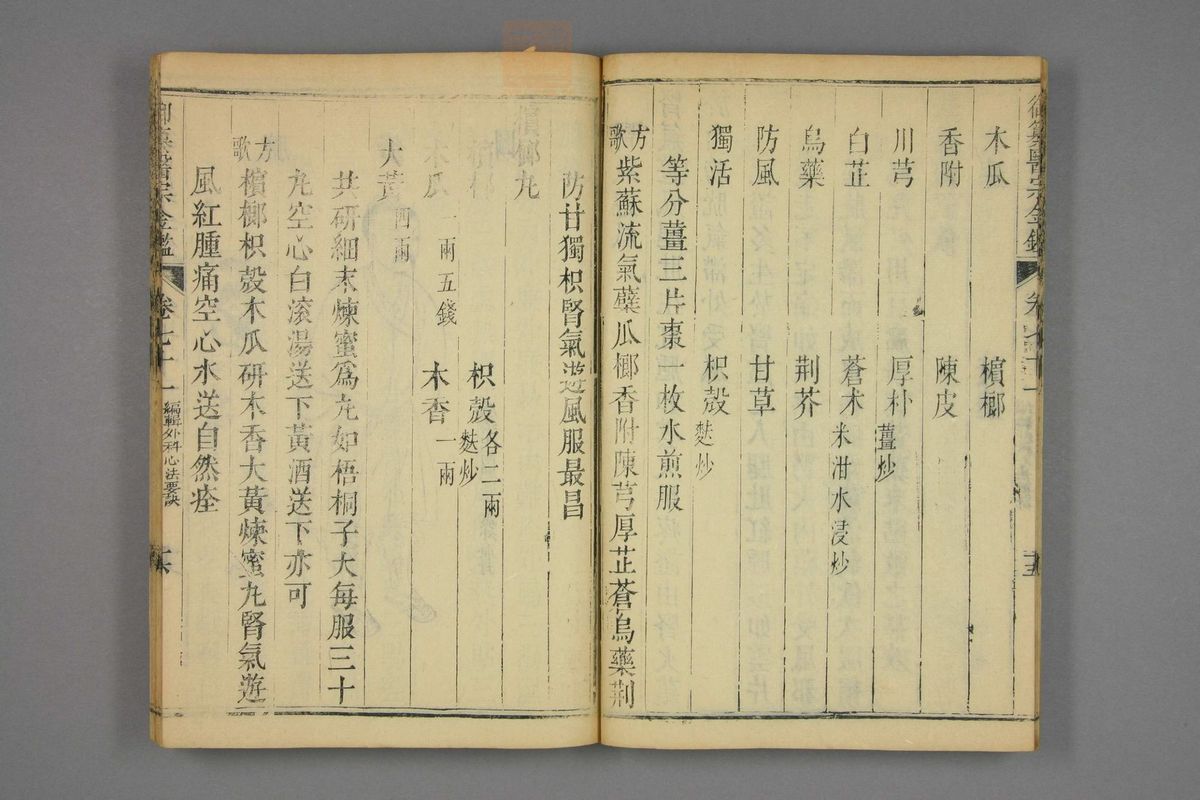 木瓜　檳榔
香附　陳皮
川芎　厚朴薑炒
白芷　蒼术米泔水浸炒
烏藥　荆芥
防風　甘草
獨活　枳殼麩炒
等分薑三片棗一枚水煎服
方歌　紫蘇流氣蘗瓜榔香附陳芎厚芷蒼烏藥荆
防甘獨枳腎氣遊風服最昌
檳榔丸
檳榔　枳殼各二兩麩炒
木瓜一兩五錢　木香一兩
大黃四兩
共研細末煉蜜爲丸如梧桐子大每服三十
丸空心白滾湯送下黃酒送下亦可
方歌　檳榔枳殼木瓜研木香大黃煉蜜丸腎氣遊
風紅腫痛空心水送自然痊
御纂醫宗金鑑　卷七十一　編輯外科心法要訣